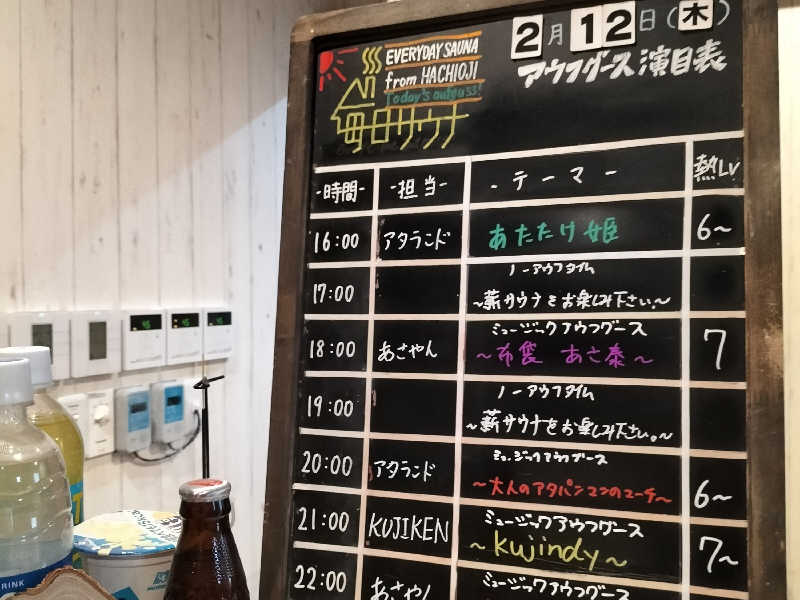 2月12日(木)
アウフグース演目表
EVERYDAY SAUNA
from HACHIOJI
Today's aufguss!
毎日サウナ
-時間- -担当- -テーマ- 熱Lv
16:00 アタランド あたたけ姫 6~
17:00 ノーアウフタイム
~薪サウナをお楽しみ下さい。~
18:00 あさやん ミュージックアウフグース 7
~布袋 あさ泰~
19:00 ノーアウフタイム
~薪サウナをお楽しみ下さい。~
20:00 アタランド ミュージックアウフグース 6~
~大人のアタパンマンのマーチ~
21:00 KUJIKEN ミュージックアウフグース 7~
~Kujindy~
22:00 あさやん ミュージックアウフグース
DRINK